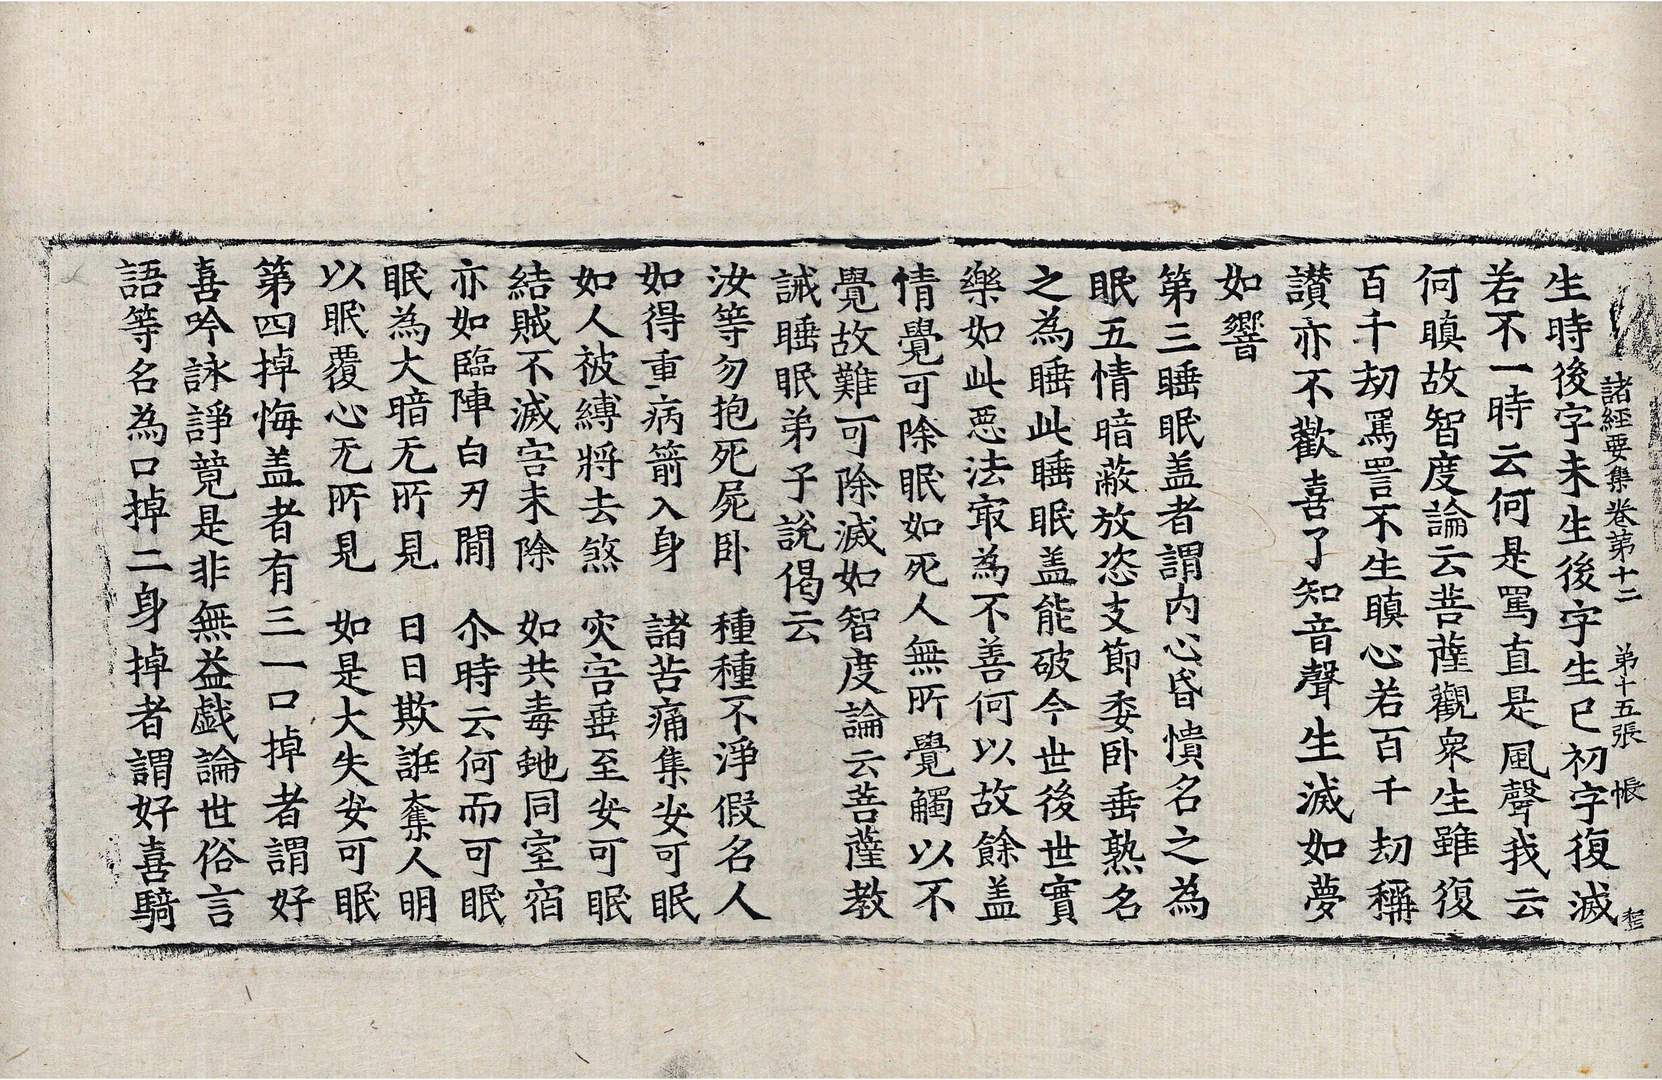 諸經要集卷苐十二 苐十五張 帳
生時後字未生後字生已初字復滅
若不一時云何是罵直是風聲我云
何瞋故智度論云菩薩觀衆生雖復
百千劫罵詈不生瞋心若百千劫稱
讃亦不歡喜了知音聲生滅如夢
如響
第三睡眠盖者謂內心昏憒名之為
眠五情暗蔽放恣支節委卧垂熟名
之為睡此睡眠盖能破今世後世實
樂如此惡法㝡為不善何以故餘盖
情覺可除眠如死人無所覺觸以不
覺故難可除滅如智度論云菩薩教
誡睡眠弟子說偈云
汝等勿抱死屍卧 種種不淨假名人
如得重病箭入身 諸苦痛集安可眠
如人被縛將去煞 灾害垂至安可眠
結賊不滅害未除 如共毒虵同室宿
亦如臨陣白刃間 尒時云何而可眠
眠為大暗无所見 日日欺誑奪人明
以眠覆心无所見 如是大失安可眠
第四掉悔盖者有三一口掉者謂好
喜吟詠諍竟是非無益戯論世俗言
語等名為口掉二身掉者謂好喜騎